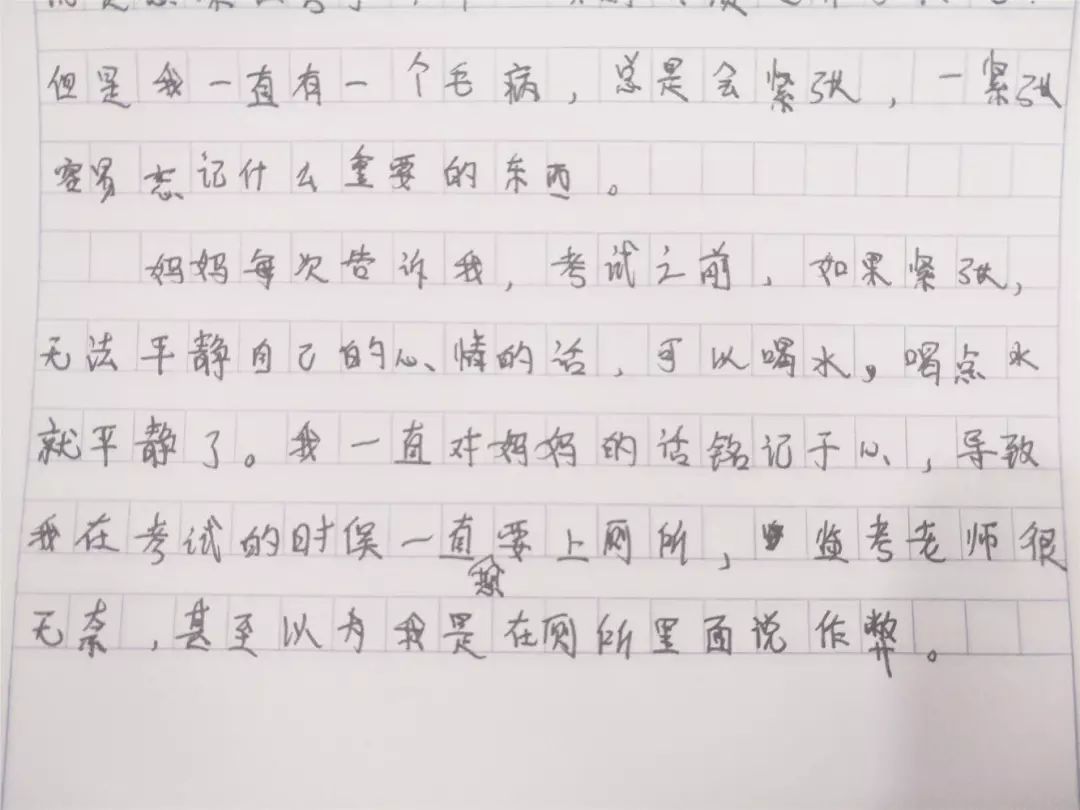 但是我一直有一个毛病，总是会紧张，一紧张
容易忘记什么重要的东西。
妈妈每次告诉我，考试之前，如果紧张，
无法平静自己的心情的话，可以喝水，喝点水
就平静了。我一直对妈妈的话铭记于心，导致
我在考试的时候一直想要上厕所，监考老师很
无奈，甚至以为我是在厕所里面说作弊。